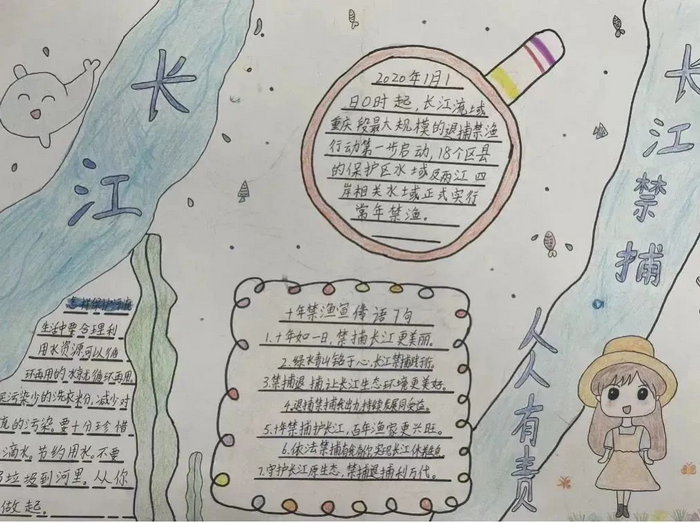 长江
2020年1月1
日0时起,长江流域
重庆段最大规模的退捕禁渔
行动第一步启动,18个区县
的保护区水域及两江四
岸相关水域正式实行
常年禁渔。
长江禁捕
人人有责
怎样保护河
生活中要合理利
用水资源可以循
环再用的水就循环再用,
污染少的洗衣粉,减少对
的污染,要十分珍惜
滴水,节约用水,不要
垃圾到河里,从你
做起.
十年禁渔宣传语7句
1.十年如一日,禁捕长江更美丽。
2.绿水青山铭于心,长江禁捕
3.禁捕退捕让长江生态环境更美好。
4.退捕禁捕我出力,持续发展同受益。
5.十年禁捕护长江,百年渔家更兴旺。
6.依法禁捕长江休养生息
7.守护长江原生态,禁捕退捕利万代。